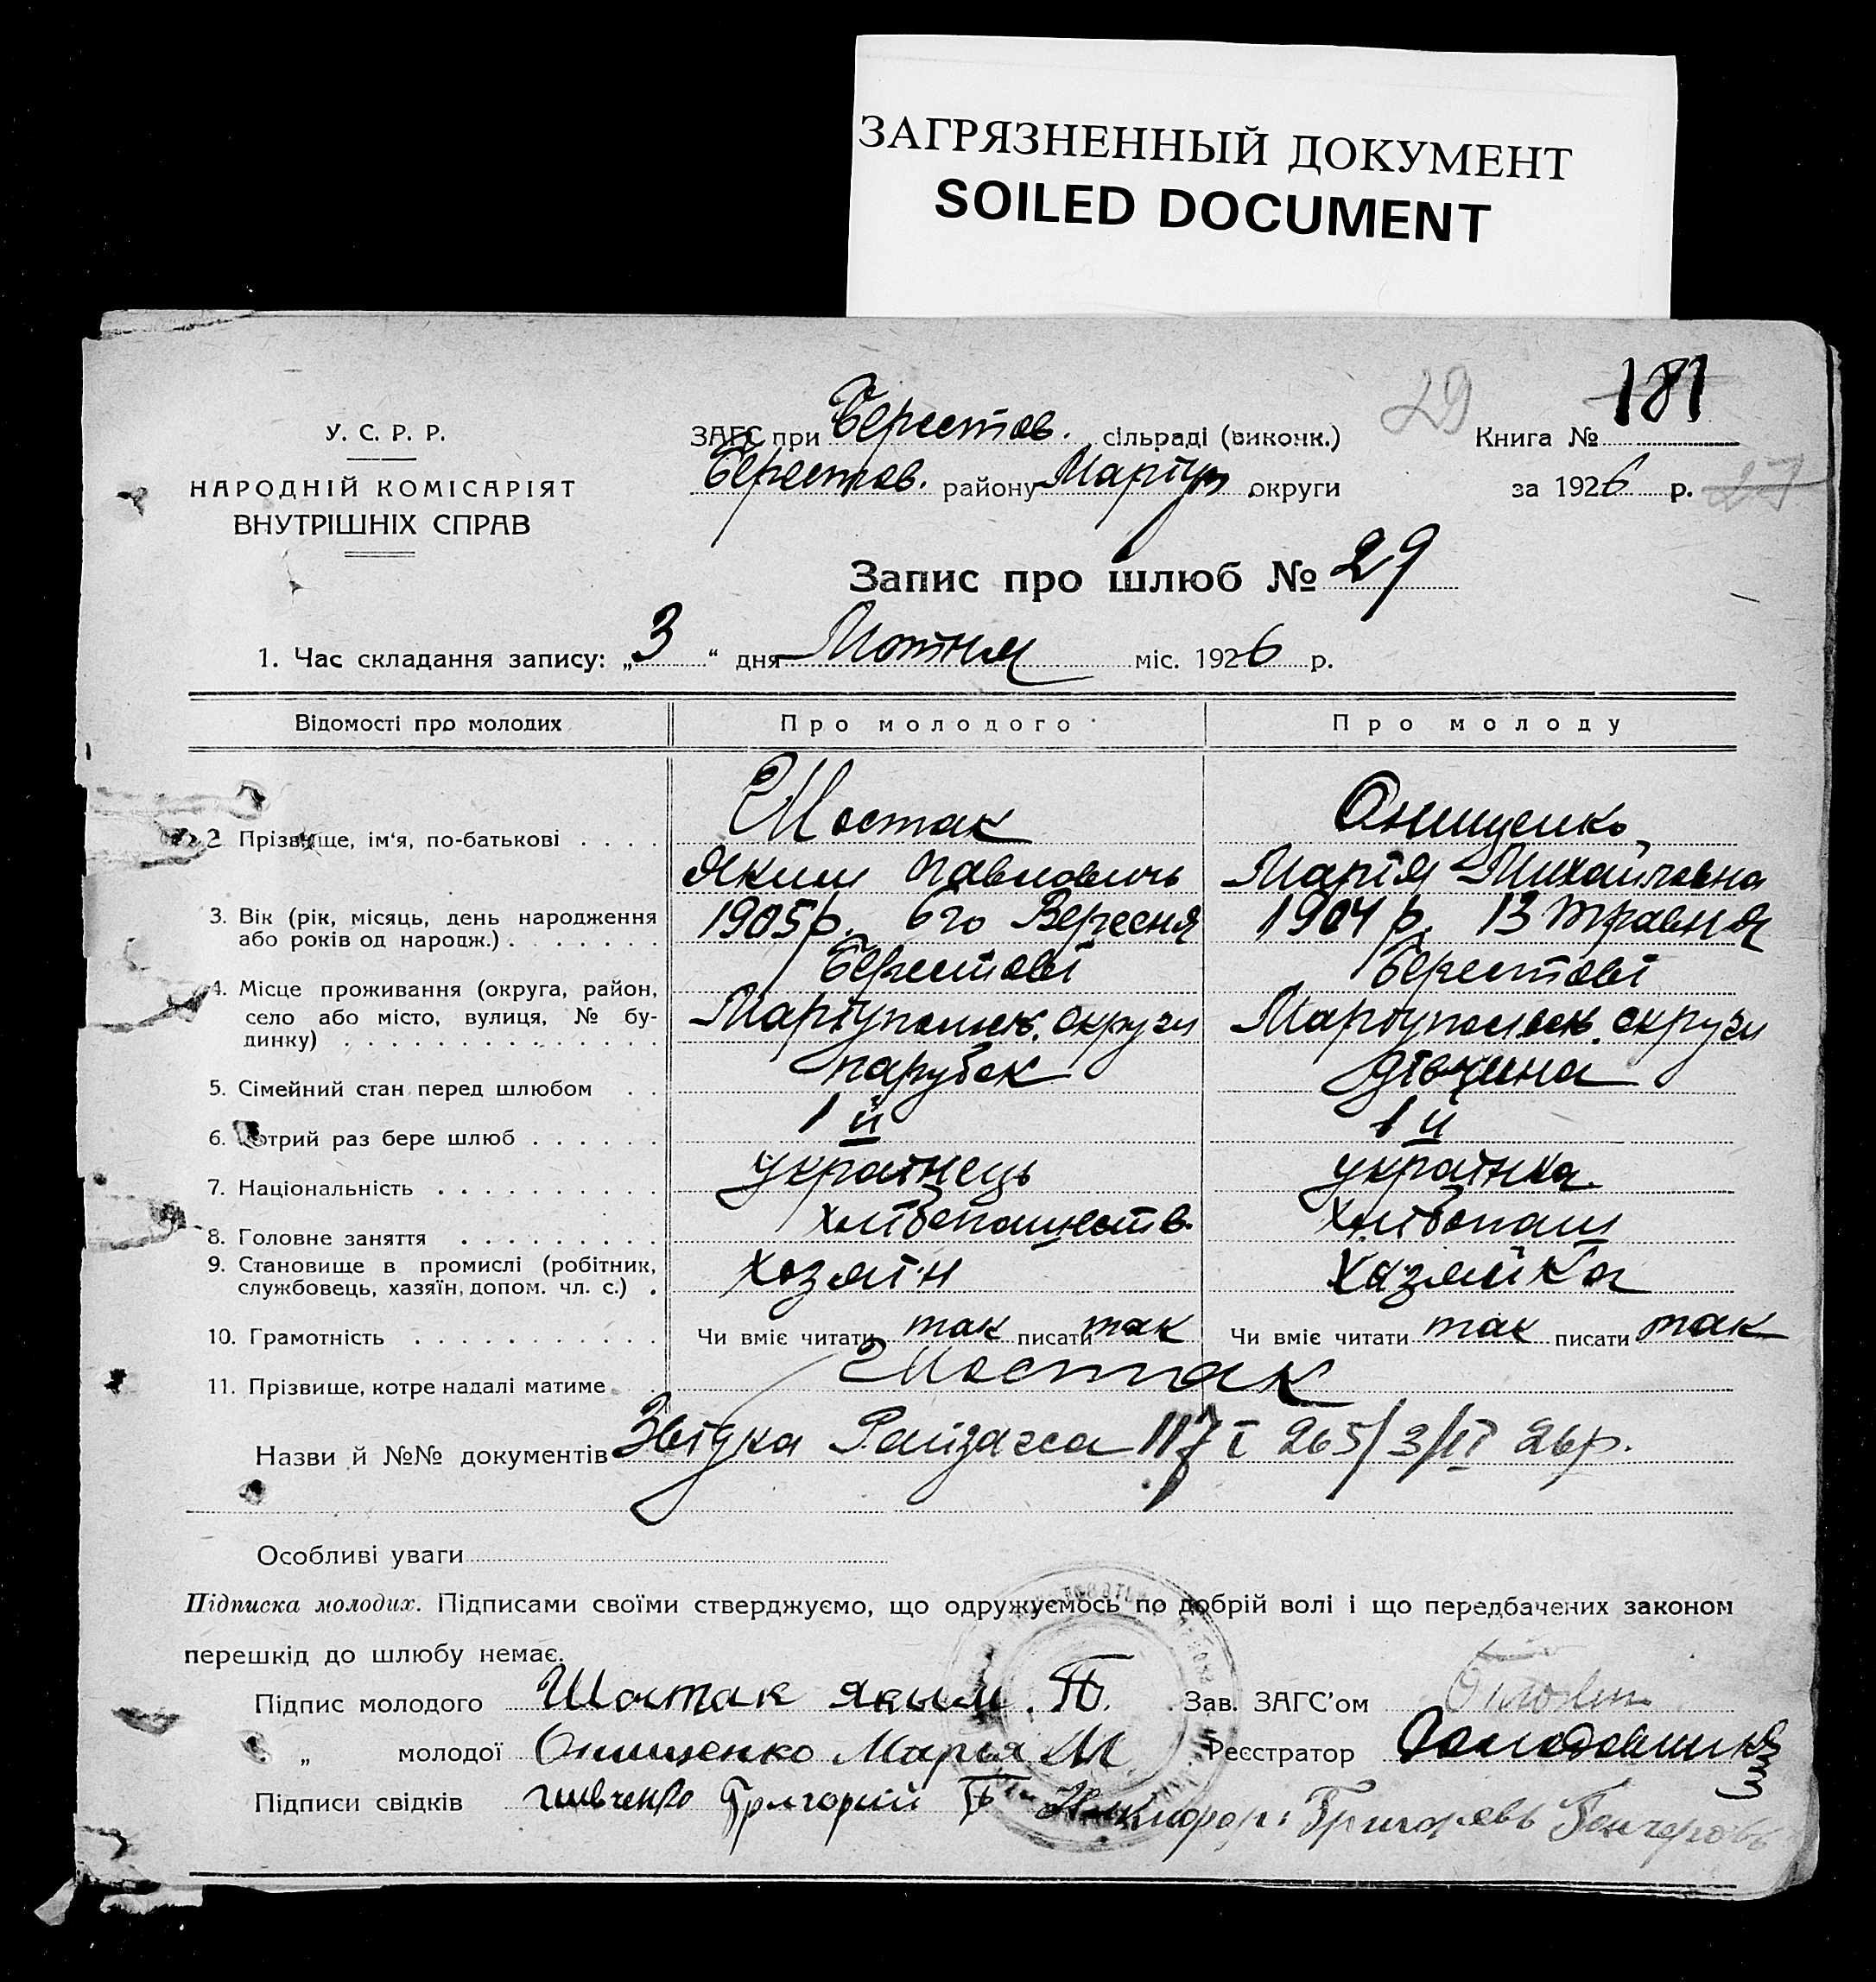 ЗАГРЯЗНЕННЫЙ ДОКУМЕНТ
SOILED DOCUMENT
29 181
У. С. Р. Р.
НАРОДНІЙ КОМІСАРІЯТ
ВНУТРІШНІХ СПРАВ
ЗАГС при Берестов. сільраді (виконк.) Книга №
Берестов. району Маріуп округи за 1926 р. 27
Запис про шлюб № 29
1. Час складання запису: „3“ дня Жотня міс. 1926 р.
Відомості про молодих Про молодого Про молоду
2. Прізвище, ім‘я, по-батькові Шостак Онищенко
Яким Павлович Марія Михайловна
3. Вік (рік, місяць, день народження 1905 р. 6го Вересня 1904 р. 13 травня
або років од народж.)
Берестові Берестові
4. Місце проживання (округа, район,
село або місто, вулиця, № бу- Маріупольськ. округи Маріупольськ. округи
динку)
5. Сімейний стан перед шлюбом парубок дівчина
6. Котрий раз бере шлюб 1й 1й
7. Національність українець українка
8. Головне заняття хлібопашеств. хлібопаш
9. Становище в промислі (робітник, хозяїн хазяйка
службовець, хазяїн, допом. чл. с.)
10. Грамотність Чи вміє читати так писати так Чи вміє читати так писати так
11. Прізвище, котре надалі матиме Шостак
Назви й №№ документів Звідка Райзагса 117 265/3/ 26р.
Особливі уваги
Підписка молодих. Підписами своїми стверджуємо, що одружуємось по добрій волі і що передбачених законом
перешкід до шлюбу немає.
Підпис молодого Шостак Якым. П. Зав. ЗАГС’ом
„ молодої Онищенко Марья М Реєстратор
Підписи свідків Григорий П Никифор Григорявъ Гончеровъ